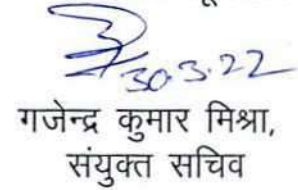 30.3.22
गजेन्द्र कुमार मिश्रा,
संयुक्त सचिव